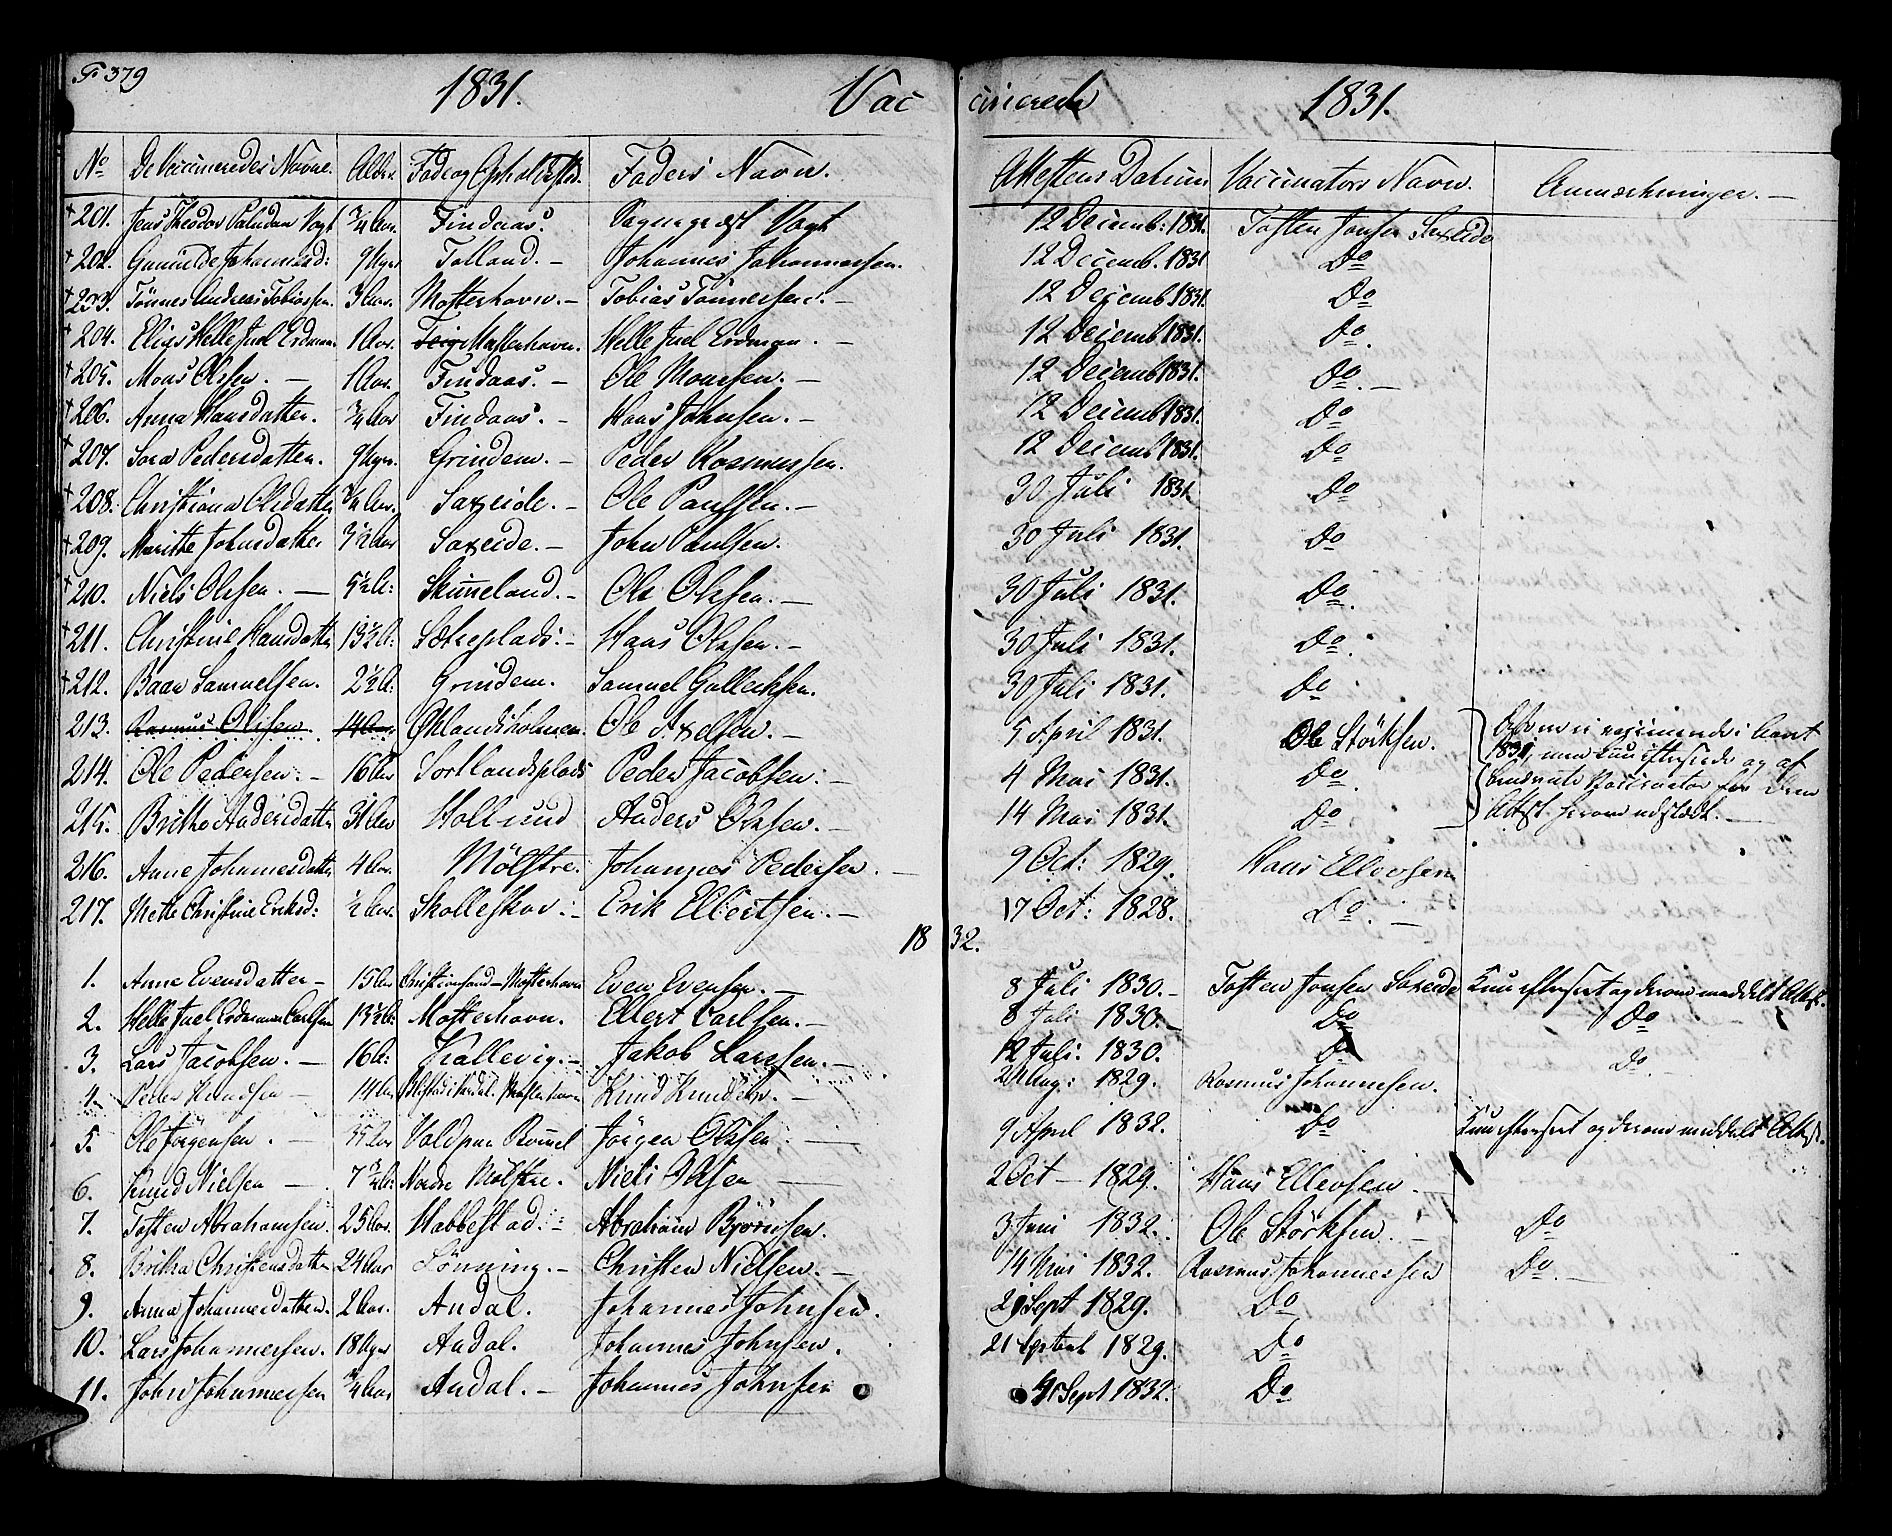 F 379 1831. Vaccinerede 1831.
No De Vaccineredes Navne. Alder Føde og Opholdssted. Faders Navn. Attestens Datum Vaccinators Navn. Anmærkninger. —
+ 201. Jens Theodor Paludan Vogt 3/4 Aar. Findaas. Sogneprest Vogt 12 Decemb: 1831. Tosten Jonsen Saxeide
+ 202. Gunnilde Johannesd: 9 Ugr Folland. — Johannes Johannessen. 12 Decemb. 1831 Do
+ 203. Tönnes Andreas Tobiassen. 3 Aar. Mosterhavn. — Tobias Tönnessen. — 12 Decemb 1831. Do
+ 204. Elias Helle Juel Erdman. 1 Aar. Mosterhavn. Helle Juel Erdman. — 12 Decemb 1831. Do.
+ 205. Mons Olsen. — 1 Aar. Findaas. — Ole Monsen. — 12 Decemb 1831. Do. —
+ 206. Anna Hansdatter. 3/4 Aar Findaas. — Hans Johnsen. — 12 Decemb 1831. Do
+ 207. Sara Pedersdatter. 9 Ugr. Grindem. — Peder Rasmussen. 12 Decemb 1831. Do
+ 208. Christiana Olsdatter 3/4 Aar. Saxeide. — Ole Paulsen. — 30 Juli 1831 Do
+ 209. Maritte Johnsdatter 3 1/2 Aar Saxeide. — John Paulsen. 30 Juli 1831. Do
+ 210. Niels Olsen. — 5 1/2 A: Skinneland. — Ole Olsen. — 30 Juli 1831. Do.
+ 211. Christine Hansdatter 13 1/2 A: Sætreplads: — Hans Olsen. — 30 Juli 1831. Do.
+ 212. Baar Samuelsen. 2 1/2 A: Grindem. Samuel Gullecksen. 30 Juli 1831. Do
213. Rasmus Olsen. 14 Aar Øklandsholmen. Ole Axelsen. — 5 April 1831. Ole Störksen.
214. Ole Pedersen. — 16 Aar Sortlandsplads Peder Jacobsen: — 4 Mai 1831. Do.
1831, men kun eftersete og af
215. Britha Andersdatter 31 Aar Hollund Anders Olsen. — 14 Mai 1831. Do —
Attest herom udstædt. —
216. Anne Johannesdatter 4 Aar. Mölstre. Johannes Pedersen. — 9 Oct: 1829. Hans Ellevsen
217. Mette Christine Eriksd: 1/2 Aar. Skolleskov: — Erik Ellertsen. — 17 Oct: 1828. Do. —
1832.
1. Anne Evensdatter — 15 Aar Christiansand — Mosterhavn Even Evensen. — 8 Juli 1830. — Tosten Jonsen Saxeide Kun eftersect og derom meddelt Attest.
2. Helle Juel Erdman Carlsen 13 1/2 A: Mosterhavn. Ellert Carlsen. — 8 Juli 1830. — Do Do
3. Lars Jacobsen. — 16 A: Kallevig. — Jakob Larssen. — 12 Juli. 1830. Do Do. —
4. Peder Knudsen — 14 Aar Mosterhavn Knud Knudsen. — Aug: 1829. Rasmus Johannesen.
5. Ole Jörgensen. — 35 Aar Jörgen Olsen — 9 April 1832. Do Kun eftersect og derom meddelt Attest.
6. Knud Nielsen — 7 A: Nordre Mölstre. Niels Olsen — 2 Oct — 1829. Hans Ellevsen.
7. Tosten Abrahamsen. 25 Aar. Habbestad: Abraham Björnsen. 3 Juni 1832. Ole Störksen. — Do
8. Britha Christensdatter 24 Aar Lönning. — Christen Nielsen. — 14 Mai 1832. Rasmus Johannessen Do. —
9. Anna Johannesdatter. 2 Aar. Andal. Johannes Johnsen. 21 Sept 1829. Do
10. Lars Johannessen. 18 Ugr Andal. Johannes Johnsen. 21 Septemb 1829. Do
11. John Johannessen 3/4 Aar Andal. — Johannes Johnsen Sept 1832. Do